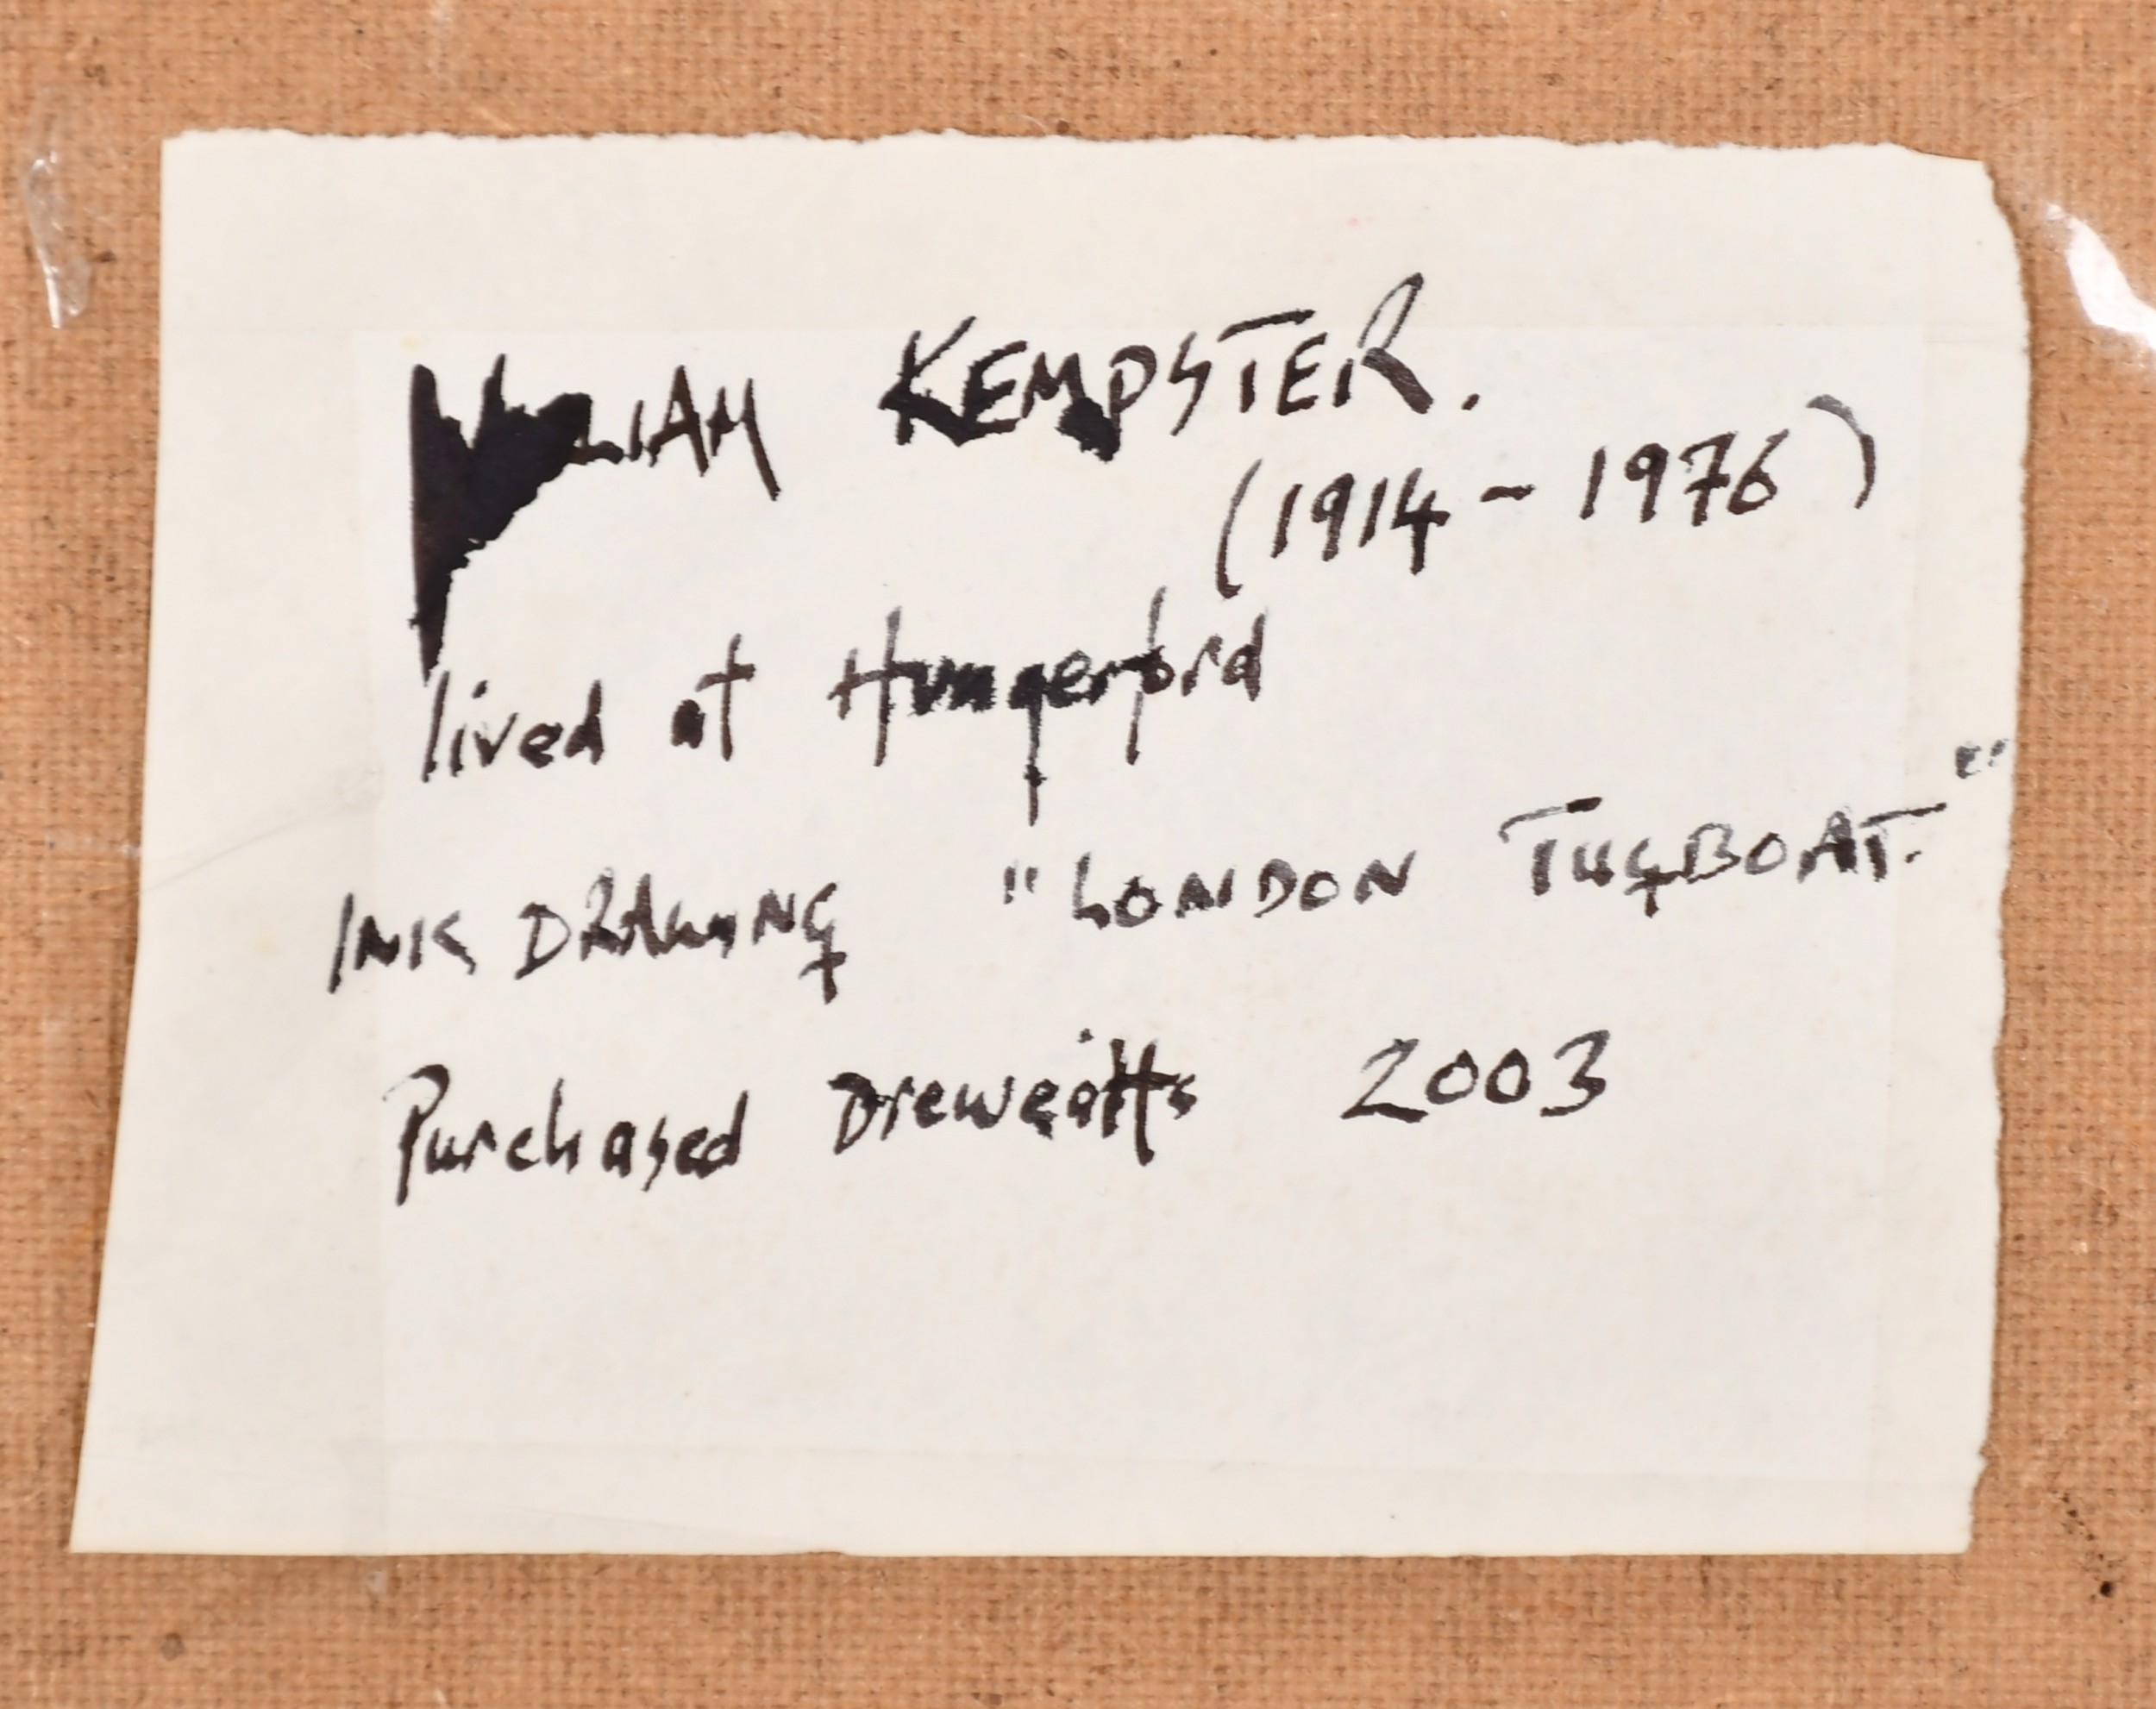 WILLIAM KEMPSTER.
(1914 - 1976)
lived at Hungerford
INK DRAWING "LONDON TUGBOAT."
Purchased Dreweatts 2003